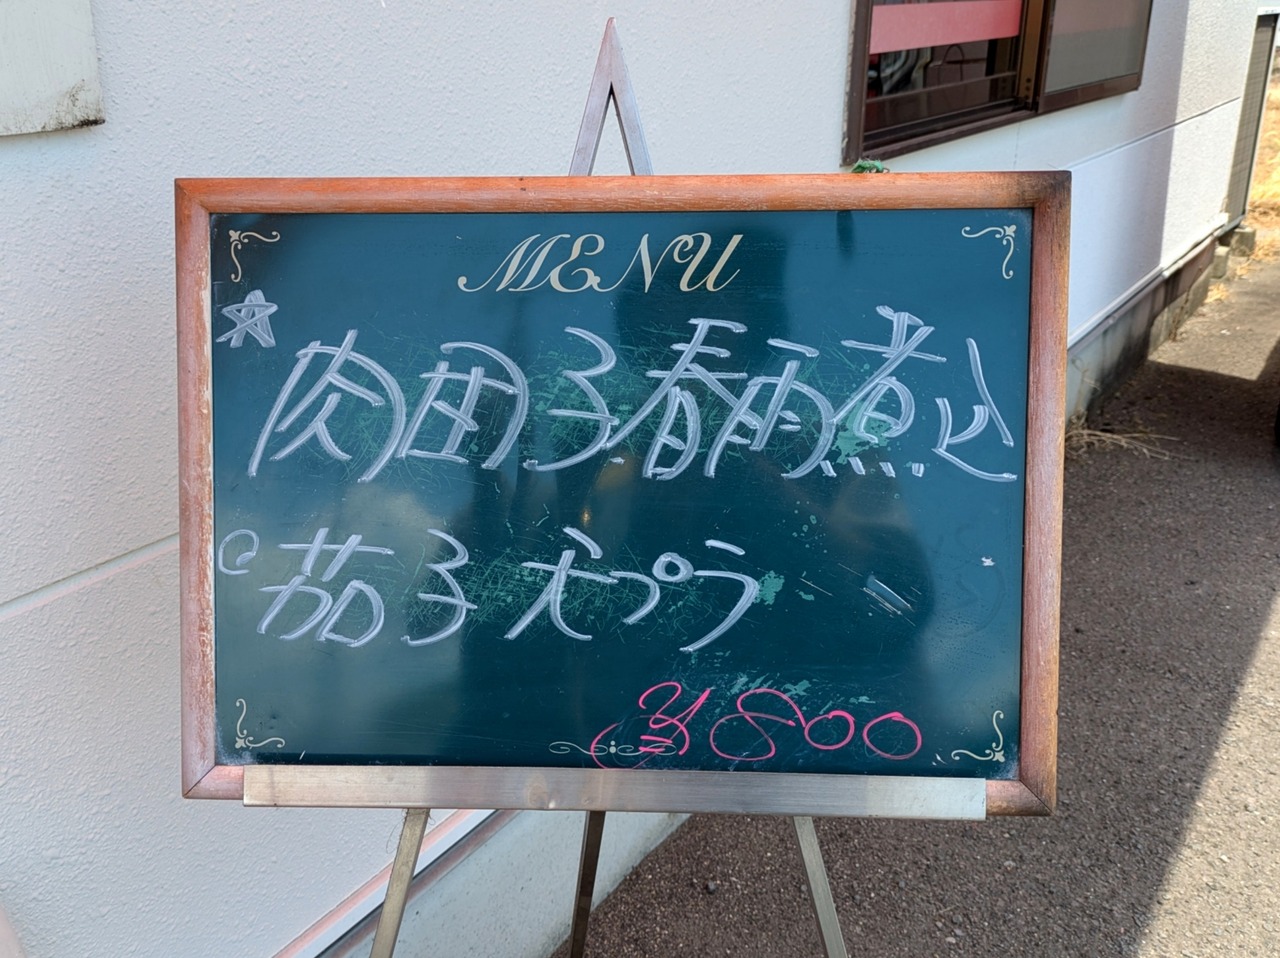 MENU
☆肉団子春雨煮込
○茄子天プラ
¥800